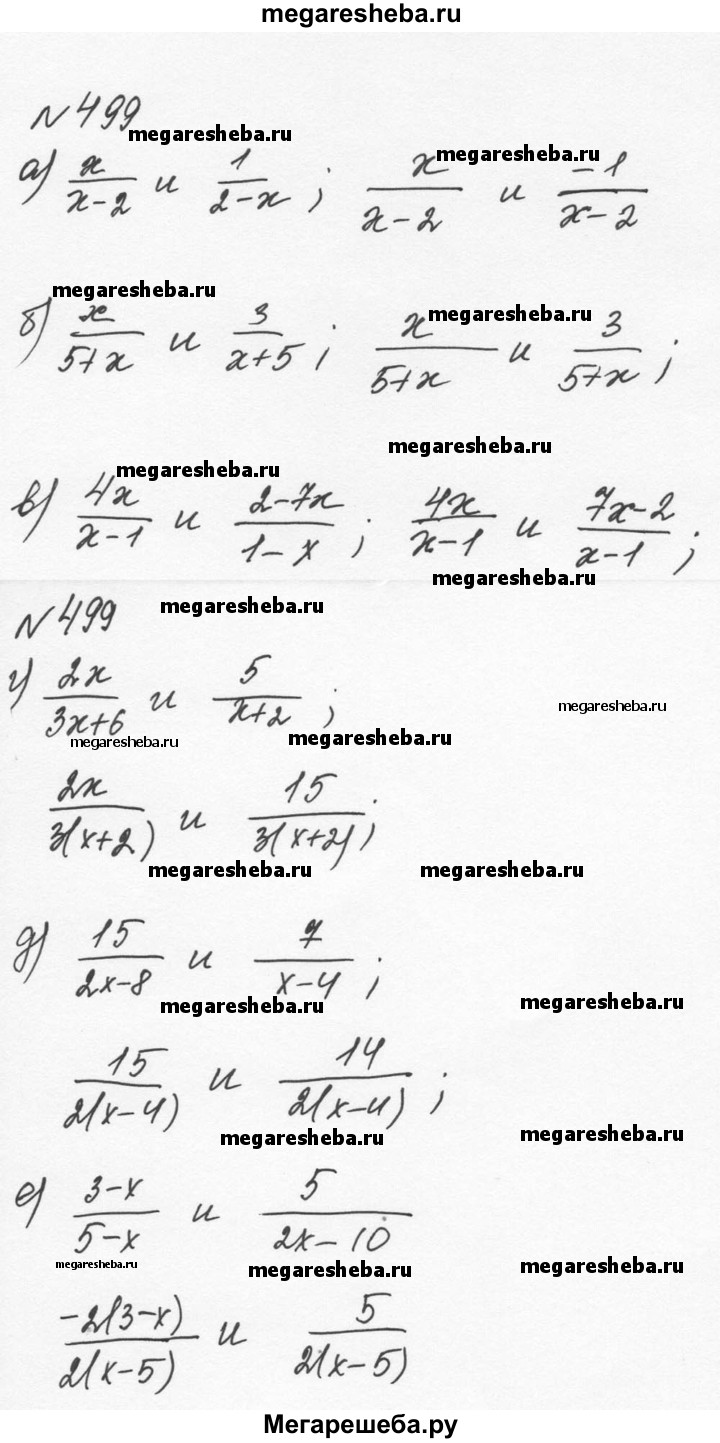 megaresheba.ru
№499
megaresheba.ru
megaresheba.ru
а) x/(x-2) и 1/(2-x) ; x/(x-2) и -1/(x-2)
megaresheba.ru
megaresheba.ru
б) x/(5+x) и 3/(x+5) ; x/(5+x) и 3/(5+x) ;
megaresheba.ru
megaresheba.ru
в) 4x/(x-1) и (2-7x)/(1-x) ; 4x/(x-1) и (7x-2)/(x-1) ;
megaresheba.ru
№499
megaresheba.ru
г) 2x/(3x+6) и 5/(x+2) ;
megaresheba.ru
megaresheba.ru
megaresheba.ru
2x/3(x+2) и 15/3(x+2) ;
megaresheba.ru
megaresheba.ru
д) 15/(2x-8) и 7/(x-4) ;
megaresheba.ru
megaresheba.ru
15/2(x-4) и 14/2(x-4) ;
megaresheba.ru
megaresheba.ru
е) (3-x)/(5-x) и 5/(2x-10)
megaresheba.ru
megaresheba.ru
megaresheba.ru
-2(3-x)/2(x-5) и 5/2(x-5)
Мегарешеба.ру